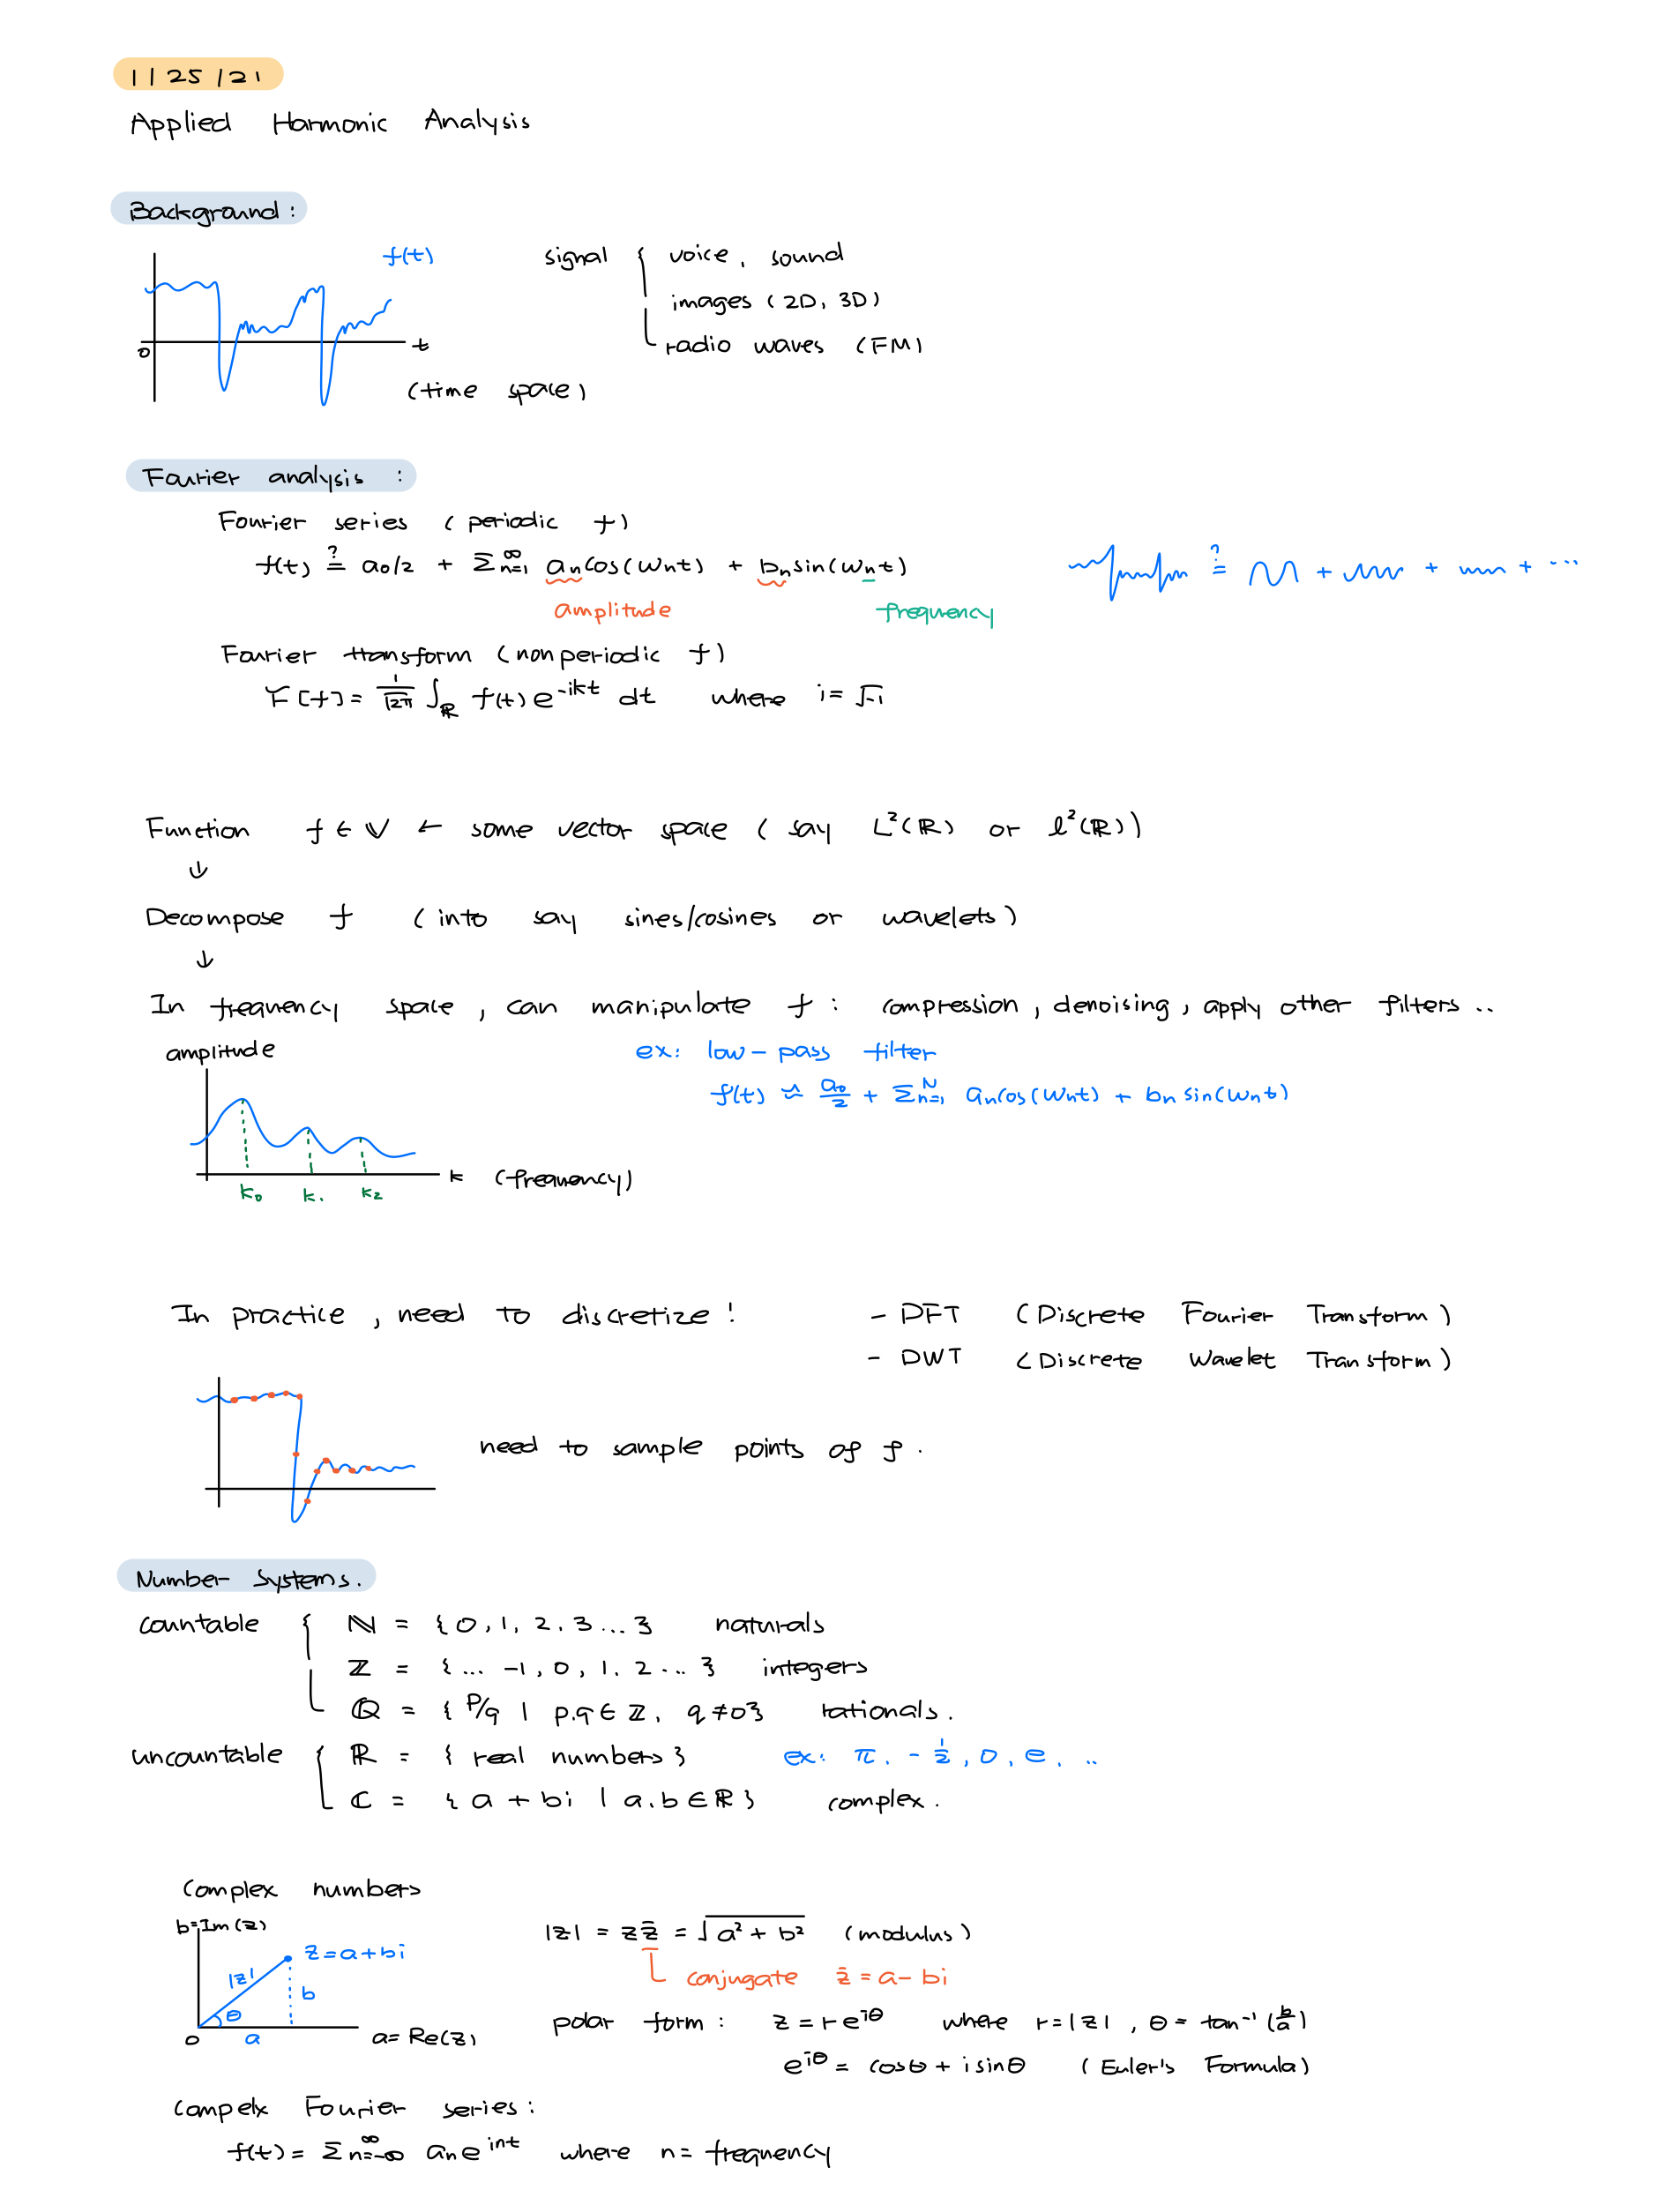 1/25/21
Applied Harmonic Analysis
Background:
f(t)
signal { voice, sound
images (2D, 3D)
radio waves (FM)
0
t
(time space)
Fourier analysis :
Fourier series (periodic f)
f(t) ≟ a₀/2 + Σₙ₌₁^∞ aₙcos(wnt) + bₙsin(wnt)
≟ + + + ...
amplitude
frequency
Fourier transform (nonperiodic f)
F[f] = 1/√2π ∫_ℝ f(t) e^-ikt dt where i = √-1
Function f ∈ V ← some vector space (say L²(ℝ) or ℓ²(ℝ))
↓
Decompose f (into say sines/cosines or wavelets)
↓
In frequency space, can manipulate f : compression, denoising, apply other filters ..
amplitude
ex: low-pass filter
f(t) ≈ a₀/2 + Σₙ₌₁^N aₙcos(wnt) + bₙ sin(wnt)
k (frequency)
k₀ k₁ k₂
In practice, need to discretize !
- DFT (Discrete Fourier Transform)
- DWT (Discrete Wavelet Transform)
need to sample points of f.
Number Systems.
countable { ℕ = {0, 1, 2, 3 ...} naturals
ℤ = {... -1, 0, 1, 2 ...} integers
ℚ = { p/q | p.q ∈ ℤ, q ≠ 0} rationals.
uncountable { ℝ = { real numbers } ex: π, -1/2, 0, e, ..
ℂ = { a + bi | a.b ∈ ℝ } complex.
Complex numbers
b=Im(z)
z=a+bi
|z|
b
θ
0
a
a= Re(z)
|z| = zz̄ = √a² + b² (modulus)
conjugate z̄ = a - bi
polar form : z = re^iθ where r=|z| , θ = tan⁻¹(b/a)
e^iθ = cosθ + i sinθ (Euler's Formula)
compelx Fourier series:
f(t) = Σₙ₌₋∞^∞ aₙe^int where n = frequency